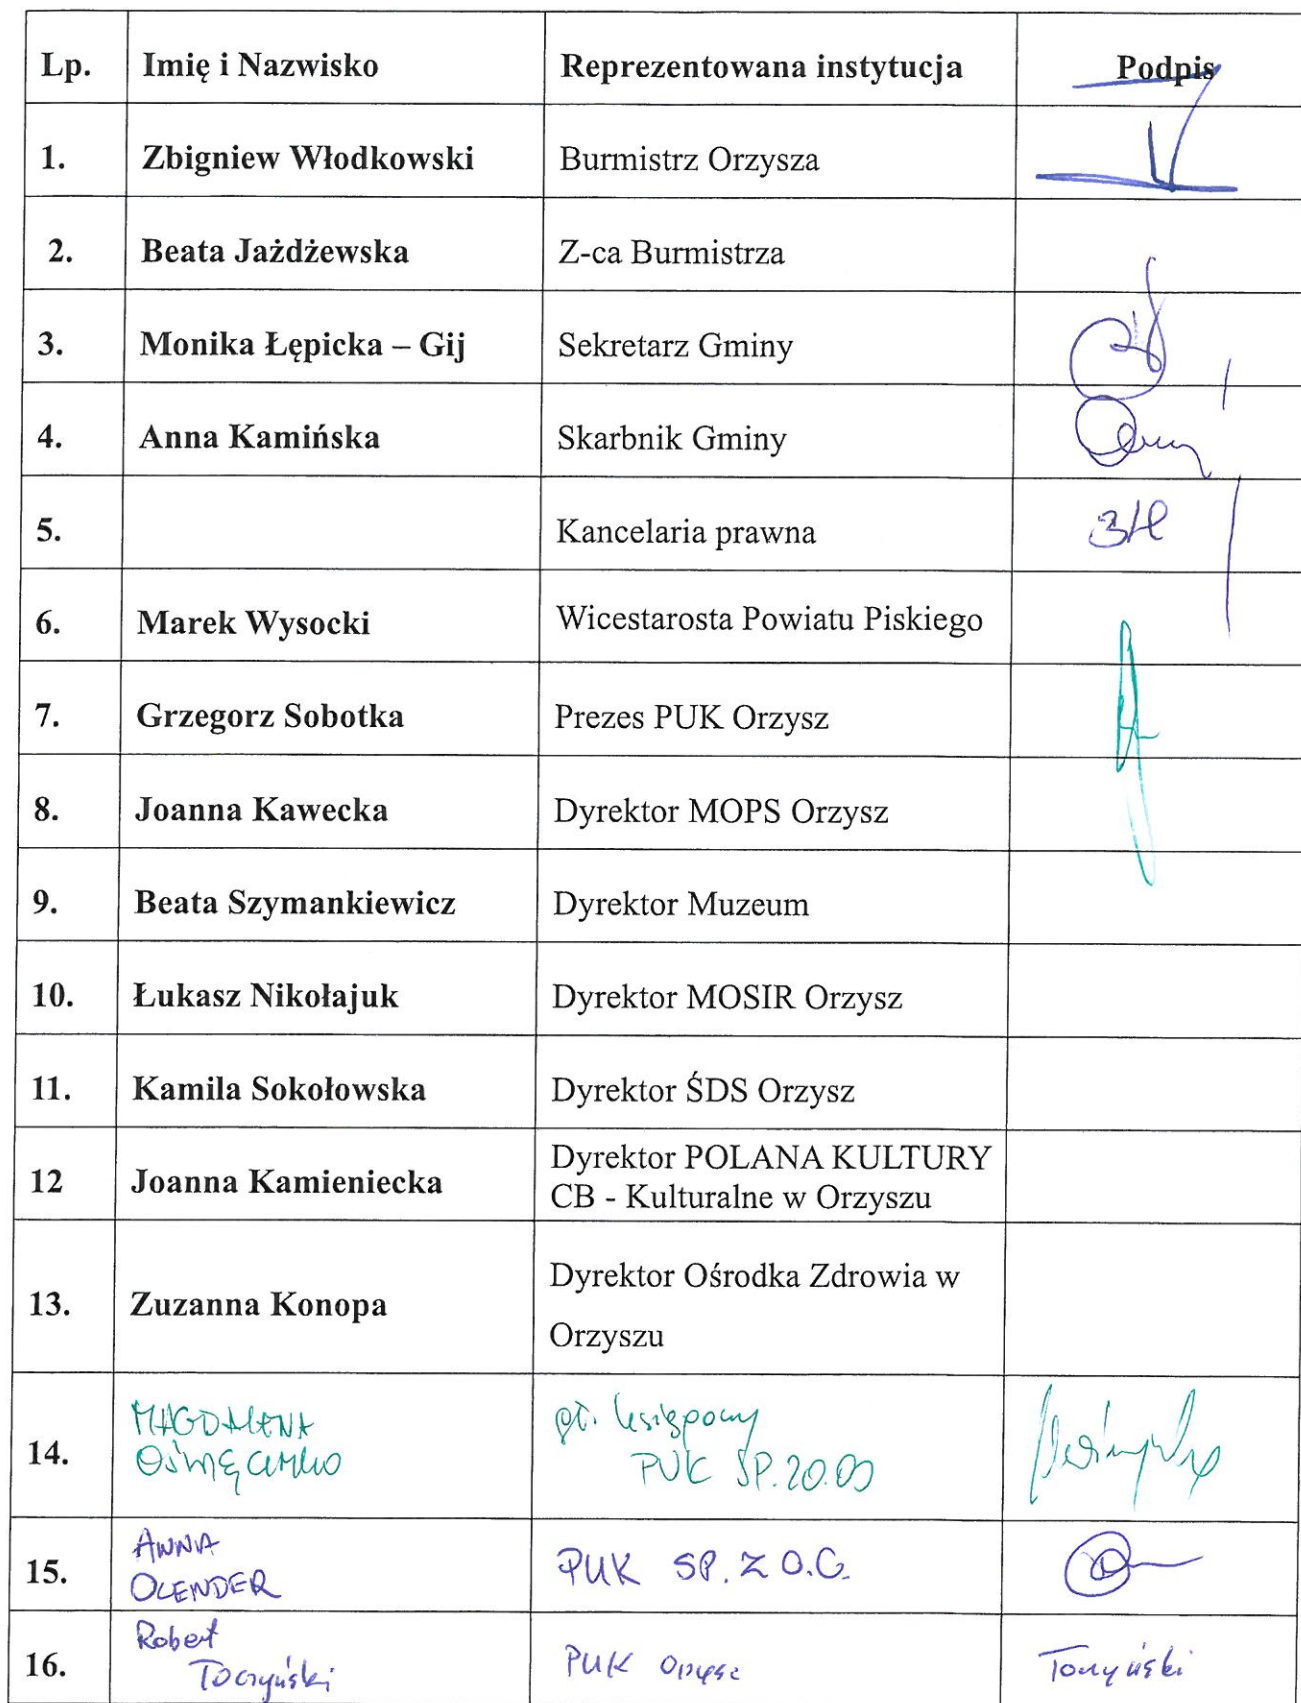 Lp. Imię i Nazwisko Reprezentowana instytucja Podpis
1. Zbigniew Włodkowski Burmistrz Orzysza
2. Beata Jażdżewska Z-ca Burmistrza
3. Monika Łępicka – Gij Sekretarz Gminy
4. Anna Kamińska Skarbnik Gminy
5. Kancelaria prawna
6. Marek Wysocki Wicestarosta Powiatu Piskiego
7. Grzegorz Sobotka Prezes PUK Orzysz
8. Joanna Kawecka Dyrektor MOPS Orzysz
9. Beata Szymankiewicz Dyrektor Muzeum
10. Łukasz Nikołajuk Dyrektor MOSIR Orzysz
11. Kamila Sokołowska Dyrektor ŚDS Orzysz
12 Joanna Kamieniecka Dyrektor POLANA KULTURY
CB - Kulturalne w Orzyszu
13. Zuzanna Konopa Dyrektor Ośrodka Zdrowia w
Orzyszu
14. MAGDALENA gł. księgowy
PUK SP. ZO.OO
15. ANNA
OLENDER PUK SP. Z O.O.
16. Robert
Toczyński PUK Orzysz Toczyński